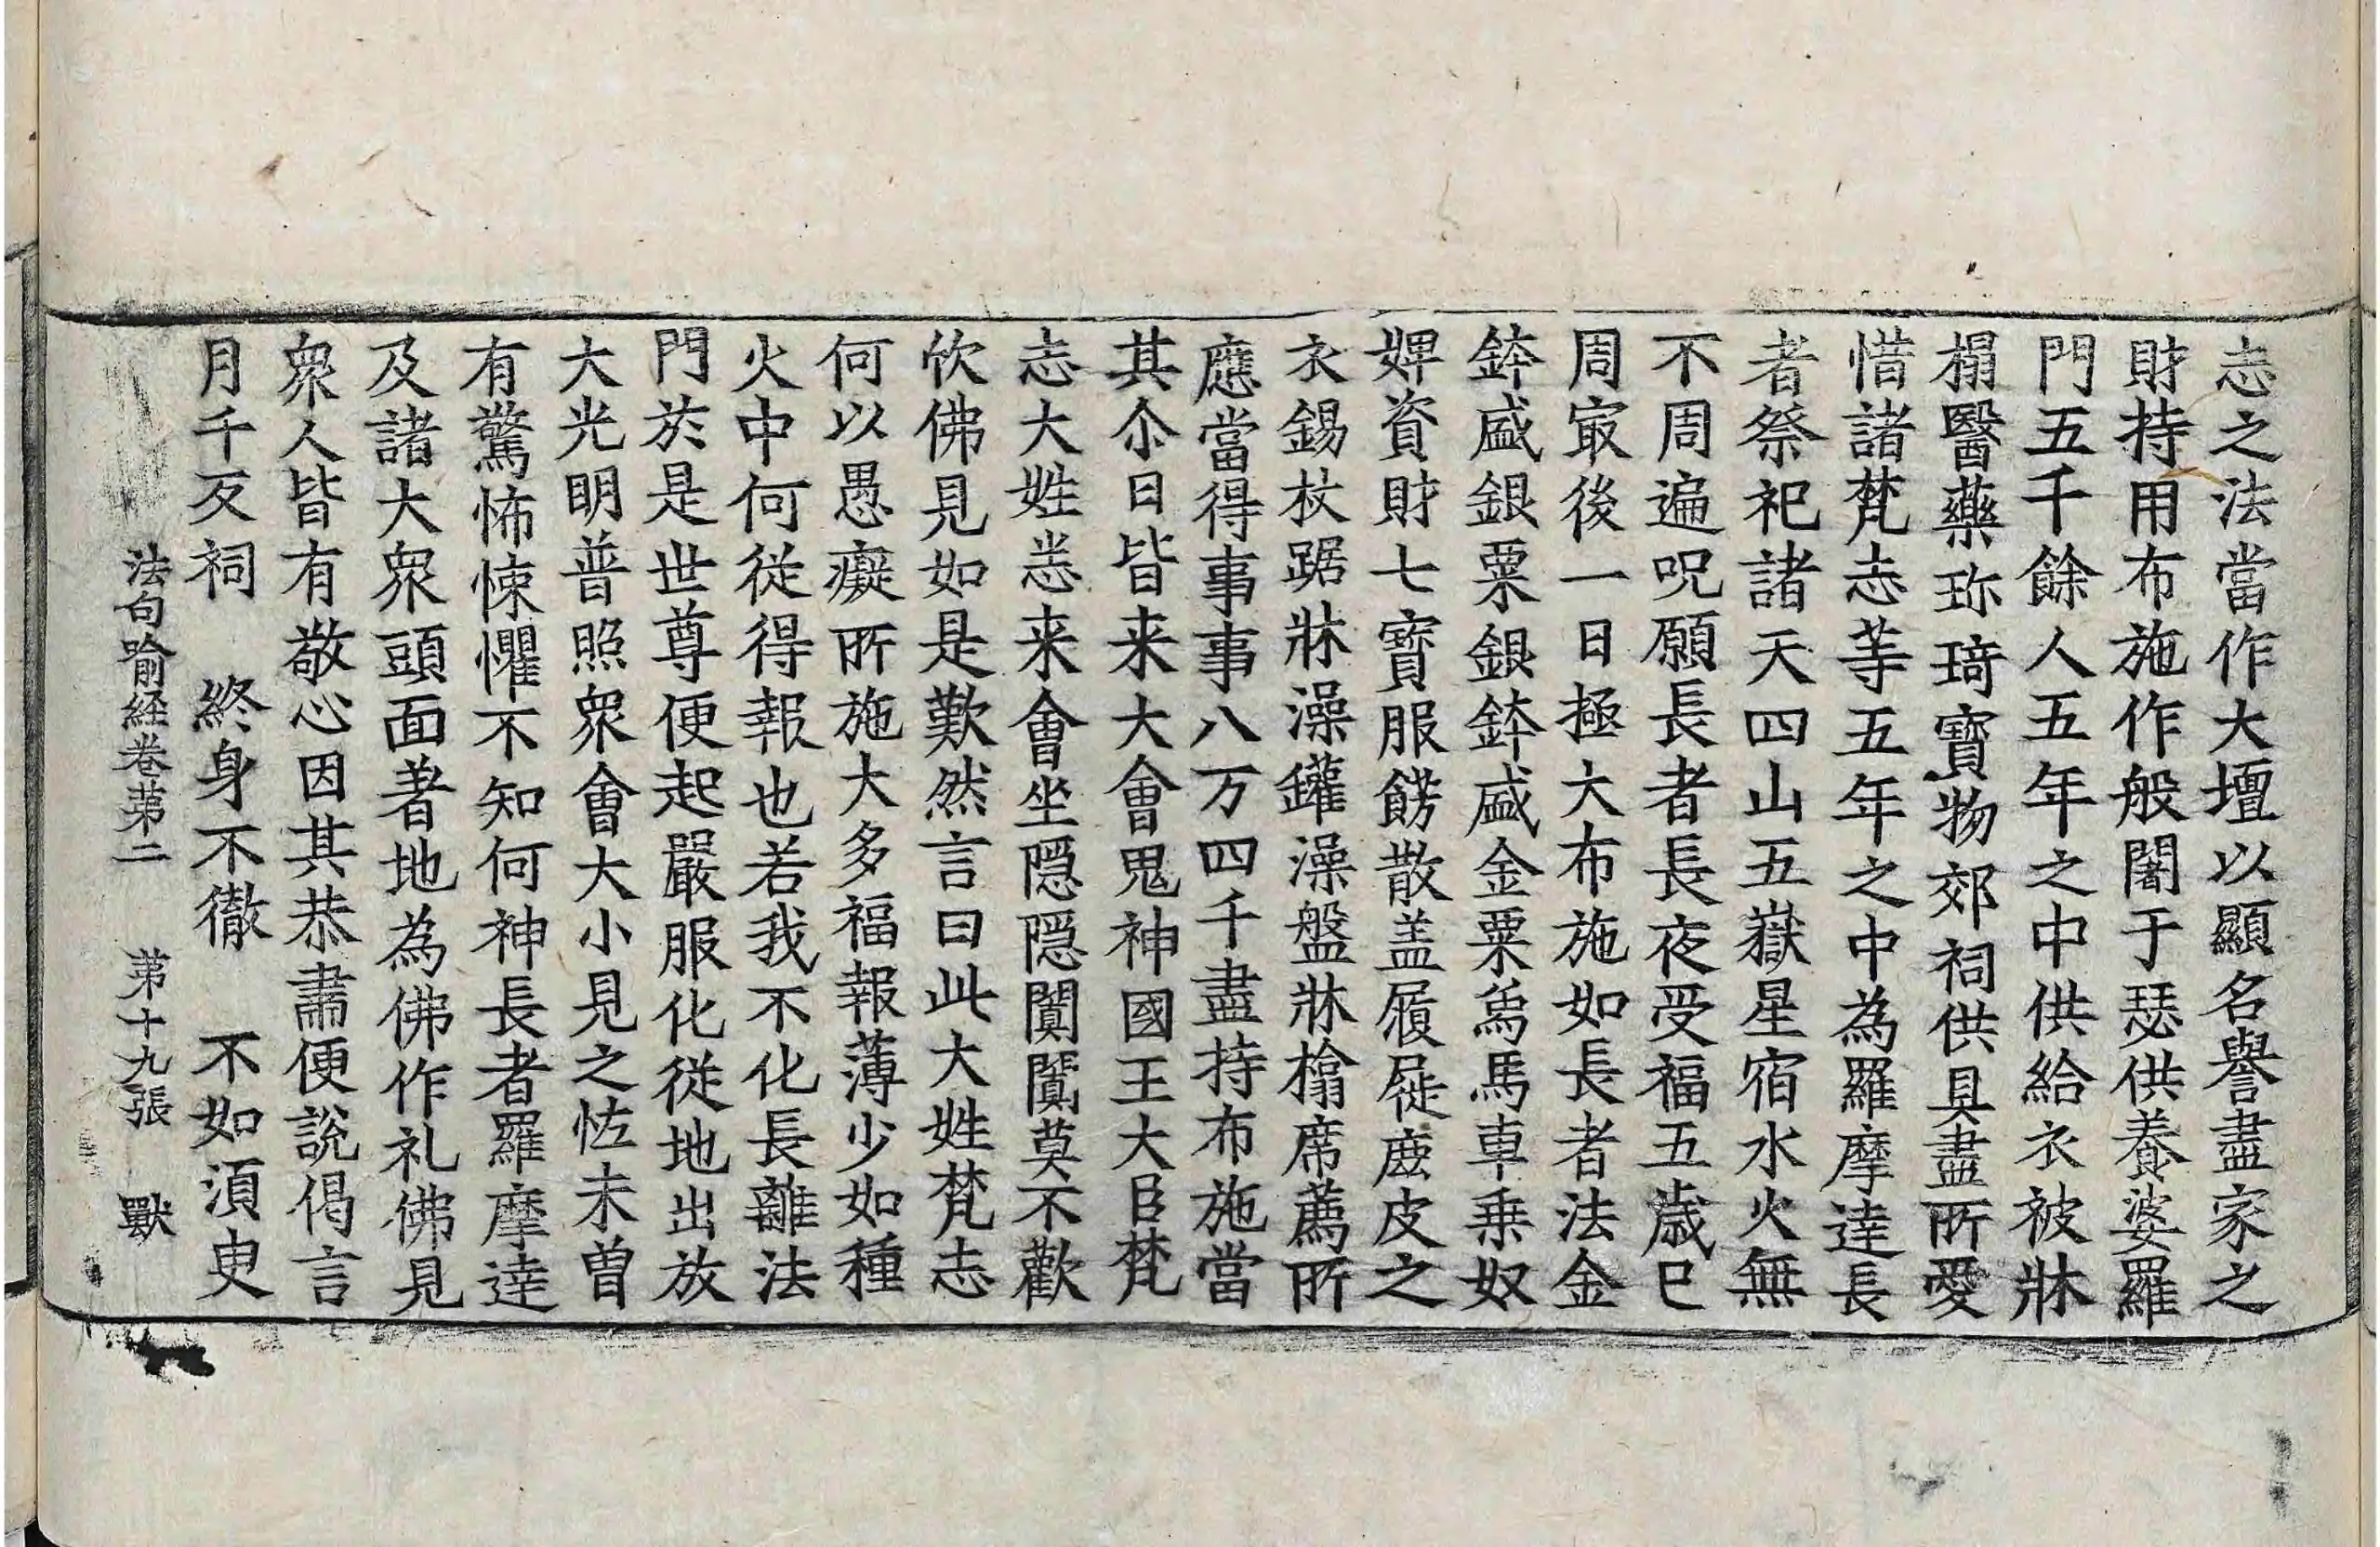 志之法當作大壇以顯名譽盡家之
財持用布施作般闍于瑟供養婆羅
門五千餘人五年之中供給衣被牀
榻醫藥珎琦寶物郊祠供具盡所愛
惜諸梵志等五年之中為羅摩達長
者祭祀諸天四山五嶽星宿水火無
不周遍呪願長者長夜受福五歳已
周㝡後一日極大布施如長者法金
鉢盛銀粟銀鉢盛金粟烏馬車乗奴
婢資財七寶服餝散盖履屣鹿皮之
衣錫杖踞牀澡鑵澡盤牀榻席薦所
應當得事事八万四千盡持布施當
其尒日皆来大會鬼神國王大臣梵
志大姓悉来會坐隠隠闐闐莫不歡
欣佛見如是歎然言曰此大姓梵志
何以愚癡所施大多福報薄少如種
火中何從得報也若我不化長離法
門於是世尊便起嚴服化從地出放
大光明普照衆會大小見之怪未曽
有驚怖悚懼不知何神長者羅摩達
及諸大衆頭面著地為佛作礼佛見
衆人皆有敬心因其恭肅便說偈言
月千反祠　終身不徹　不如湏臾
法句喻経卷苐二　苐十九張　獸